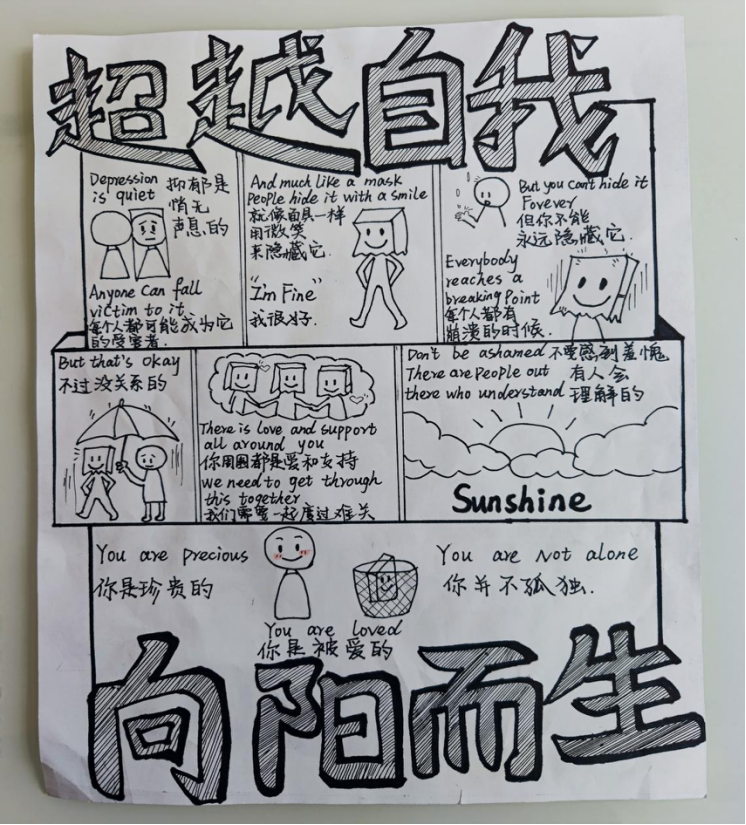 超越自我
Depression
is quiet
抑郁是
悄无
声息的
Anyone can fall
victim to it
每个人都可能成为它
的受害者.
And much like a mask
People hide it with a smile
就像面具一样
用微笑
来隐藏它.
"I'm Fine"
我很好.
But you can't hide it
Forever
但你不能
永远隐藏它.
Everybody
reaches a
breaking Point
每个人都有
崩溃的时候.
But that's okay
不过没关系的
There is love and support
all around you
你周围都是爱和支持
we need to get through
this together
我们需要一起度过难关
Don't be ashamed 不要感到羞愧
There are People out 有人会
there who understand 理解的
Sunshine
You are precious
你是珍贵的
You are loved
你是被爱的
You are Not alone
你并不孤独.
向阳而生